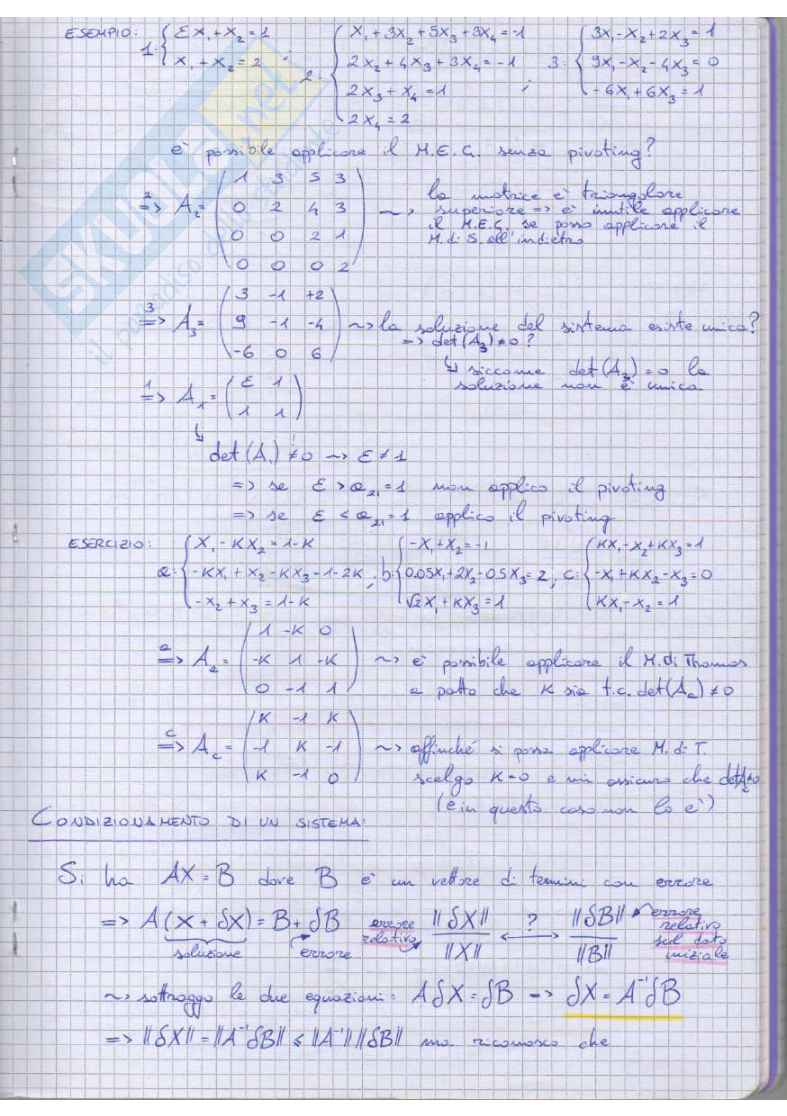 ESEMPIO: 1. { εX₁+X₂=1 ; 2. { X₁+3X₂+5X₃+3X₄=-1 ; 3. { 3X₁-X₂+2X₃=1
X₁+X₂=2 2X₂+4X₃+3X₄=-1 9X₁-X₂-4X₃=0
2X₃+X₄=1 -6X₁+6X₃=1
2X₄=2
è possibile applicare il M.E.G. senza pivoting?
2 => A₂= ( 1 3 5 3 ~> la matrice è triangolare
0 2 4 3 superiore => è inutile applicare
0 0 2 1 il M.E.G. se posso applicare il
0 0 0 2 ) M. di S. all'indietro
3 => A₃= ( 3 -1 +2
9 -1 -4 ~> la soluzione del sistema esiste unica?
-6 0 6 ) => det(A₃)≠0?
↳ siccome det(A₃)=0 la
soluzione non è unica
1 => A₁= ( ε 1
1 1 )
↳ det(A₁)≠0 ~> ε≠1
=> se ε>a₂₁=1 non applico il pivoting
=> se ε<a₂₁=1 applico il pivoting
ESERCIZIO: a. { X₁-KX₂=1-K b. { -X₁+X₂=-1 c. { KX₁-X₂+KX₃=1
-KX₁+X₂-KX₃=1-2K ; 0.05X₁+2X₂-0.5X₃=2 ; -X₁+KX₂-X₃=0
-X₂+X₃=1-K √2X₁+KX₃=1 KX₁-X₂=1
a => Aₐ= ( 1 -K 0
-K 1 -K ~> è possibile applicare il M. di Thomas
0 -1 1 ) a patto che K sia t.c. det(Aₐ)≠0
c => A_c= ( K -1 K
-1 K -1 ~> affinché si possa applicare M. di T.
K -1 0 ) scelgo K=0 e mi assicuro che det A≠0
(e in questo caso non lo è)
CONDIZIONAMENTO DI UN SISTEMA:
Si ha AX=B dove B è un vettore di termini con errore
=> A(X+δX)=B+δB errore relativo ‖δX‖/‖X‖ <-?-> ‖δB‖/‖B‖ errore relativo sul dato iniziale
soluzione errore
~> sottraggo le due equazioni: AδX=δB => δX=A⁻¹δB
=> ‖δX‖=‖A⁻¹δB‖≤‖A⁻¹‖‖δB‖ ma riconosco che
SKUOLA.net
il paradiso